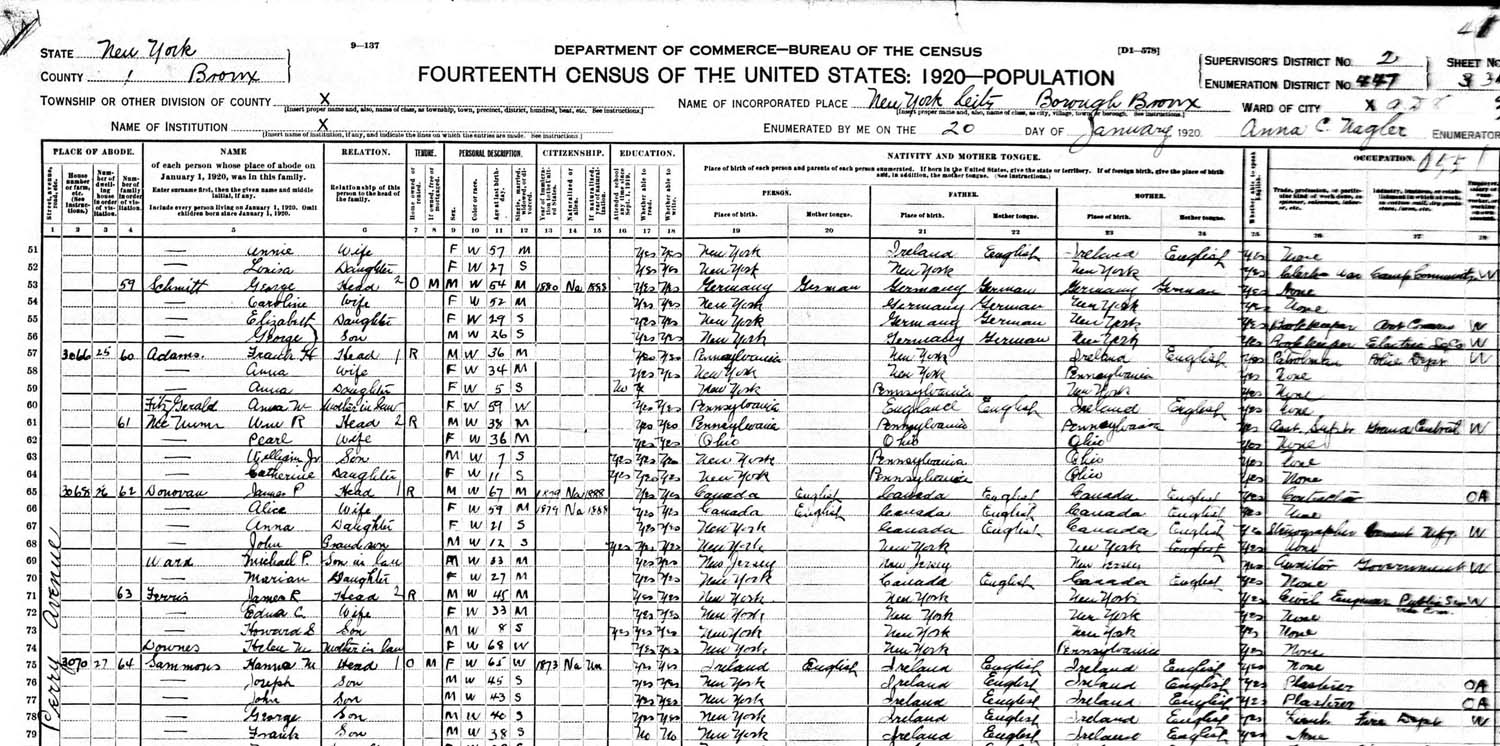 9—137
DEPARTMENT OF COMMERCE—BUREAU OF THE CENSUS
[D1-578]
STATE New York
COUNTY Bronx
FOURTEENTH CENSUS OF THE UNITED STATES: 1920—POPULATION
SUPERVISOR'S DISTRICT No. 2 SHEET No.
ENUMERATION DISTRICT No. 447
TOWNSHIP OR OTHER DIVISION OF COUNTY X
NAME OF INCORPORATED PLACE New York City Borough Bronx
WARD OF CITY X
NAME OF INSTITUTION X
ENUMERATED BY ME ON THE 20 DAY OF January 1920. Anna C. Nagler ENUMERATOR
PLACE OF ABODE. NAME RELATION. TENURE. PERSONAL DESCRIPTION. CITIZENSHIP. EDUCATION. NATIVITY AND MOTHER TONGUE. OCCUPATION.
of each person whose place of abode on January 1, 1920, was in this family.
Enter surname first, then the given name and middle initial, if any.
Include every person living on January 1, 1920. Omit children born since January 1, 1920.
Relationship of this person to the head of the family.
Place of birth of each person and parents of each person enumerated. If born in the United States, give the state or territory. If of foreign birth, give the place of birth and, in addition, the mother tongue. (See instructions.)
PERSON. FATHER. MOTHER.
Place of birth. Mother tongue. Place of birth. Mother tongue. Place of birth. Mother tongue.
1 2 3 4 5 6 7 8 9 10 11 12 13 14 15 16 17 18 19 20 21 22 23 24 25 26 27 28
51 — Annie Wife F W 57 M Yes Yes New York Ireland English Ireland English Yes None
52 — Louisa Daughter F W 27 S Yes Yes New York New York New York Yes
53 59 Schmitt George Head 2 O M M W 54 M 1880 Na 1888 Yes Yes Germany German Germany German Germany German Yes None
54 — Caroline Wife F W 52 M Yes Yes New York Germany German New York Yes None
55 — Elizabeth Daughter F W 29 S Yes Yes New York Germany German New York Yes Bookkeeper W
56 — George Son M W 26 S Yes Yes New York Germany German New York Yes Bookkeeper W
57 3066 25 60 Adams. Frank H Head 1 R M W 36 M Yes Yes Pennsylvania New York Ireland English Yes Patrolman Police Dept W
58 — Anna Wife F W 34 M Yes Yes New York New York Pennsylvania Yes None
59 — Anna Daughter F W 5 S No New York Pennsylvania New York Yes None
60 Fitz Gerald Anna W Mother in law F W 59 W Yes Yes Pennsylvania England English Ireland English Yes None
61 61 Wm R Head 2 R M W 38 M Yes Yes Pennsylvania Pennsylvania Pennsylvania Yes Grand Central W
62 — Pearl Wife F W 36 M Yes Yes Ohio Ohio Ohio Yes None
63 — William Jr Son M W 7 S Yes Yes Yes New York Pennsylvania Ohio Yes None
64 — Catherine Daughter F W 11 S Yes Yes Yes New York Pennsylvania Ohio Yes None
65 3068 26 62 Donovan James P Head 1 R M W 67 M 1879 Na 1888 Yes Yes Canada English Canada English Canada English Yes Contractor OA
66 — Alice Wife F W 59 M 1879 Na 1888 Yes Yes Canada English Canada English Canada English Yes None
67 — Anna Daughter F W 21 S Yes Yes New York Canada English Canada English Yes Stenographer W
68 — John Grandson M W 12 S Yes Yes Yes New York New York New York Yes None
69 Ward Michael P. Son in law M W 33 M Yes Yes New Jersey New Jersey New Jersey Yes Auditor Government W
70 — Marian Daughter F W 27 M Yes Yes New York Canada English Canada English Yes None
71 63 Ferris James R Head 2 R M W 45 M Yes Yes New York New York New York Yes Civil Engineer W
72 — Edna C. Wife F W 33 M Yes Yes New York New York New York Yes None
73 — Howard S Son M W 8 S Yes Yes Yes New York New York New York Yes None
74 Downes Helen M Mother in law F W 68 W Yes Yes New York New York Pennsylvania Yes None
75 3070 27 64 Sammons Hanna M Head 1 O M F W 65 W 1873 Na Un Yes Yes Ireland English Ireland English Ireland English Yes None
76 — Joseph Son M W 45 S Yes Yes New York Ireland English Ireland English Yes Plasterer OA
77 — John Son M W 43 S Yes Yes New York Ireland English Ireland English Yes Plasterer OA
78 — George Son M W 40 S Yes Yes New York Ireland English Ireland English Yes Fire Dept W
79 — Frank Son M W 38 S No No New York Ireland English Ireland English Yes None
Perry Avenue